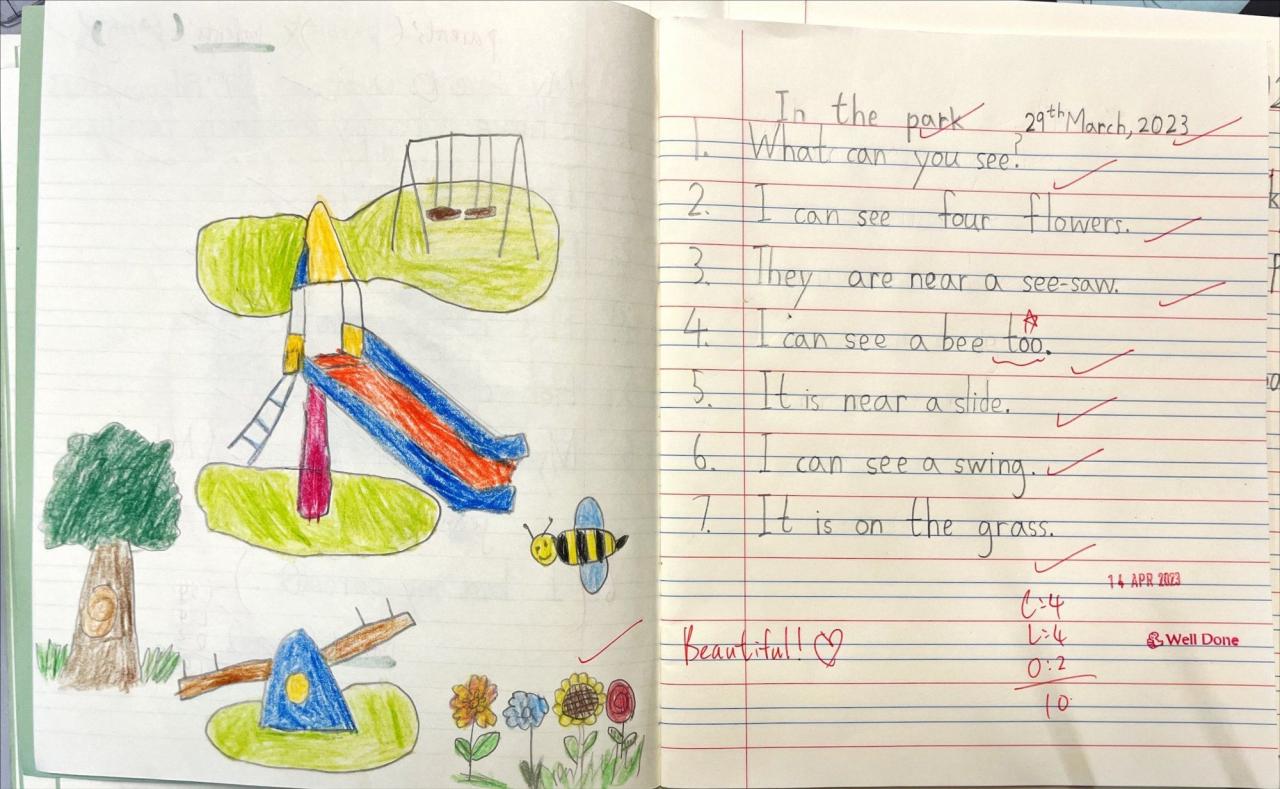 In the park 29th March, 2023
1. What can you see?
2. I can see four flowers.
3. They are near a see-saw.
4. I can see a bee too.
5. It is near a slide.
6. I can see a swing.
7. It is on the grass.
14 APR 2023
C:4
L:4
Beautiful! Well Done
O:2
10